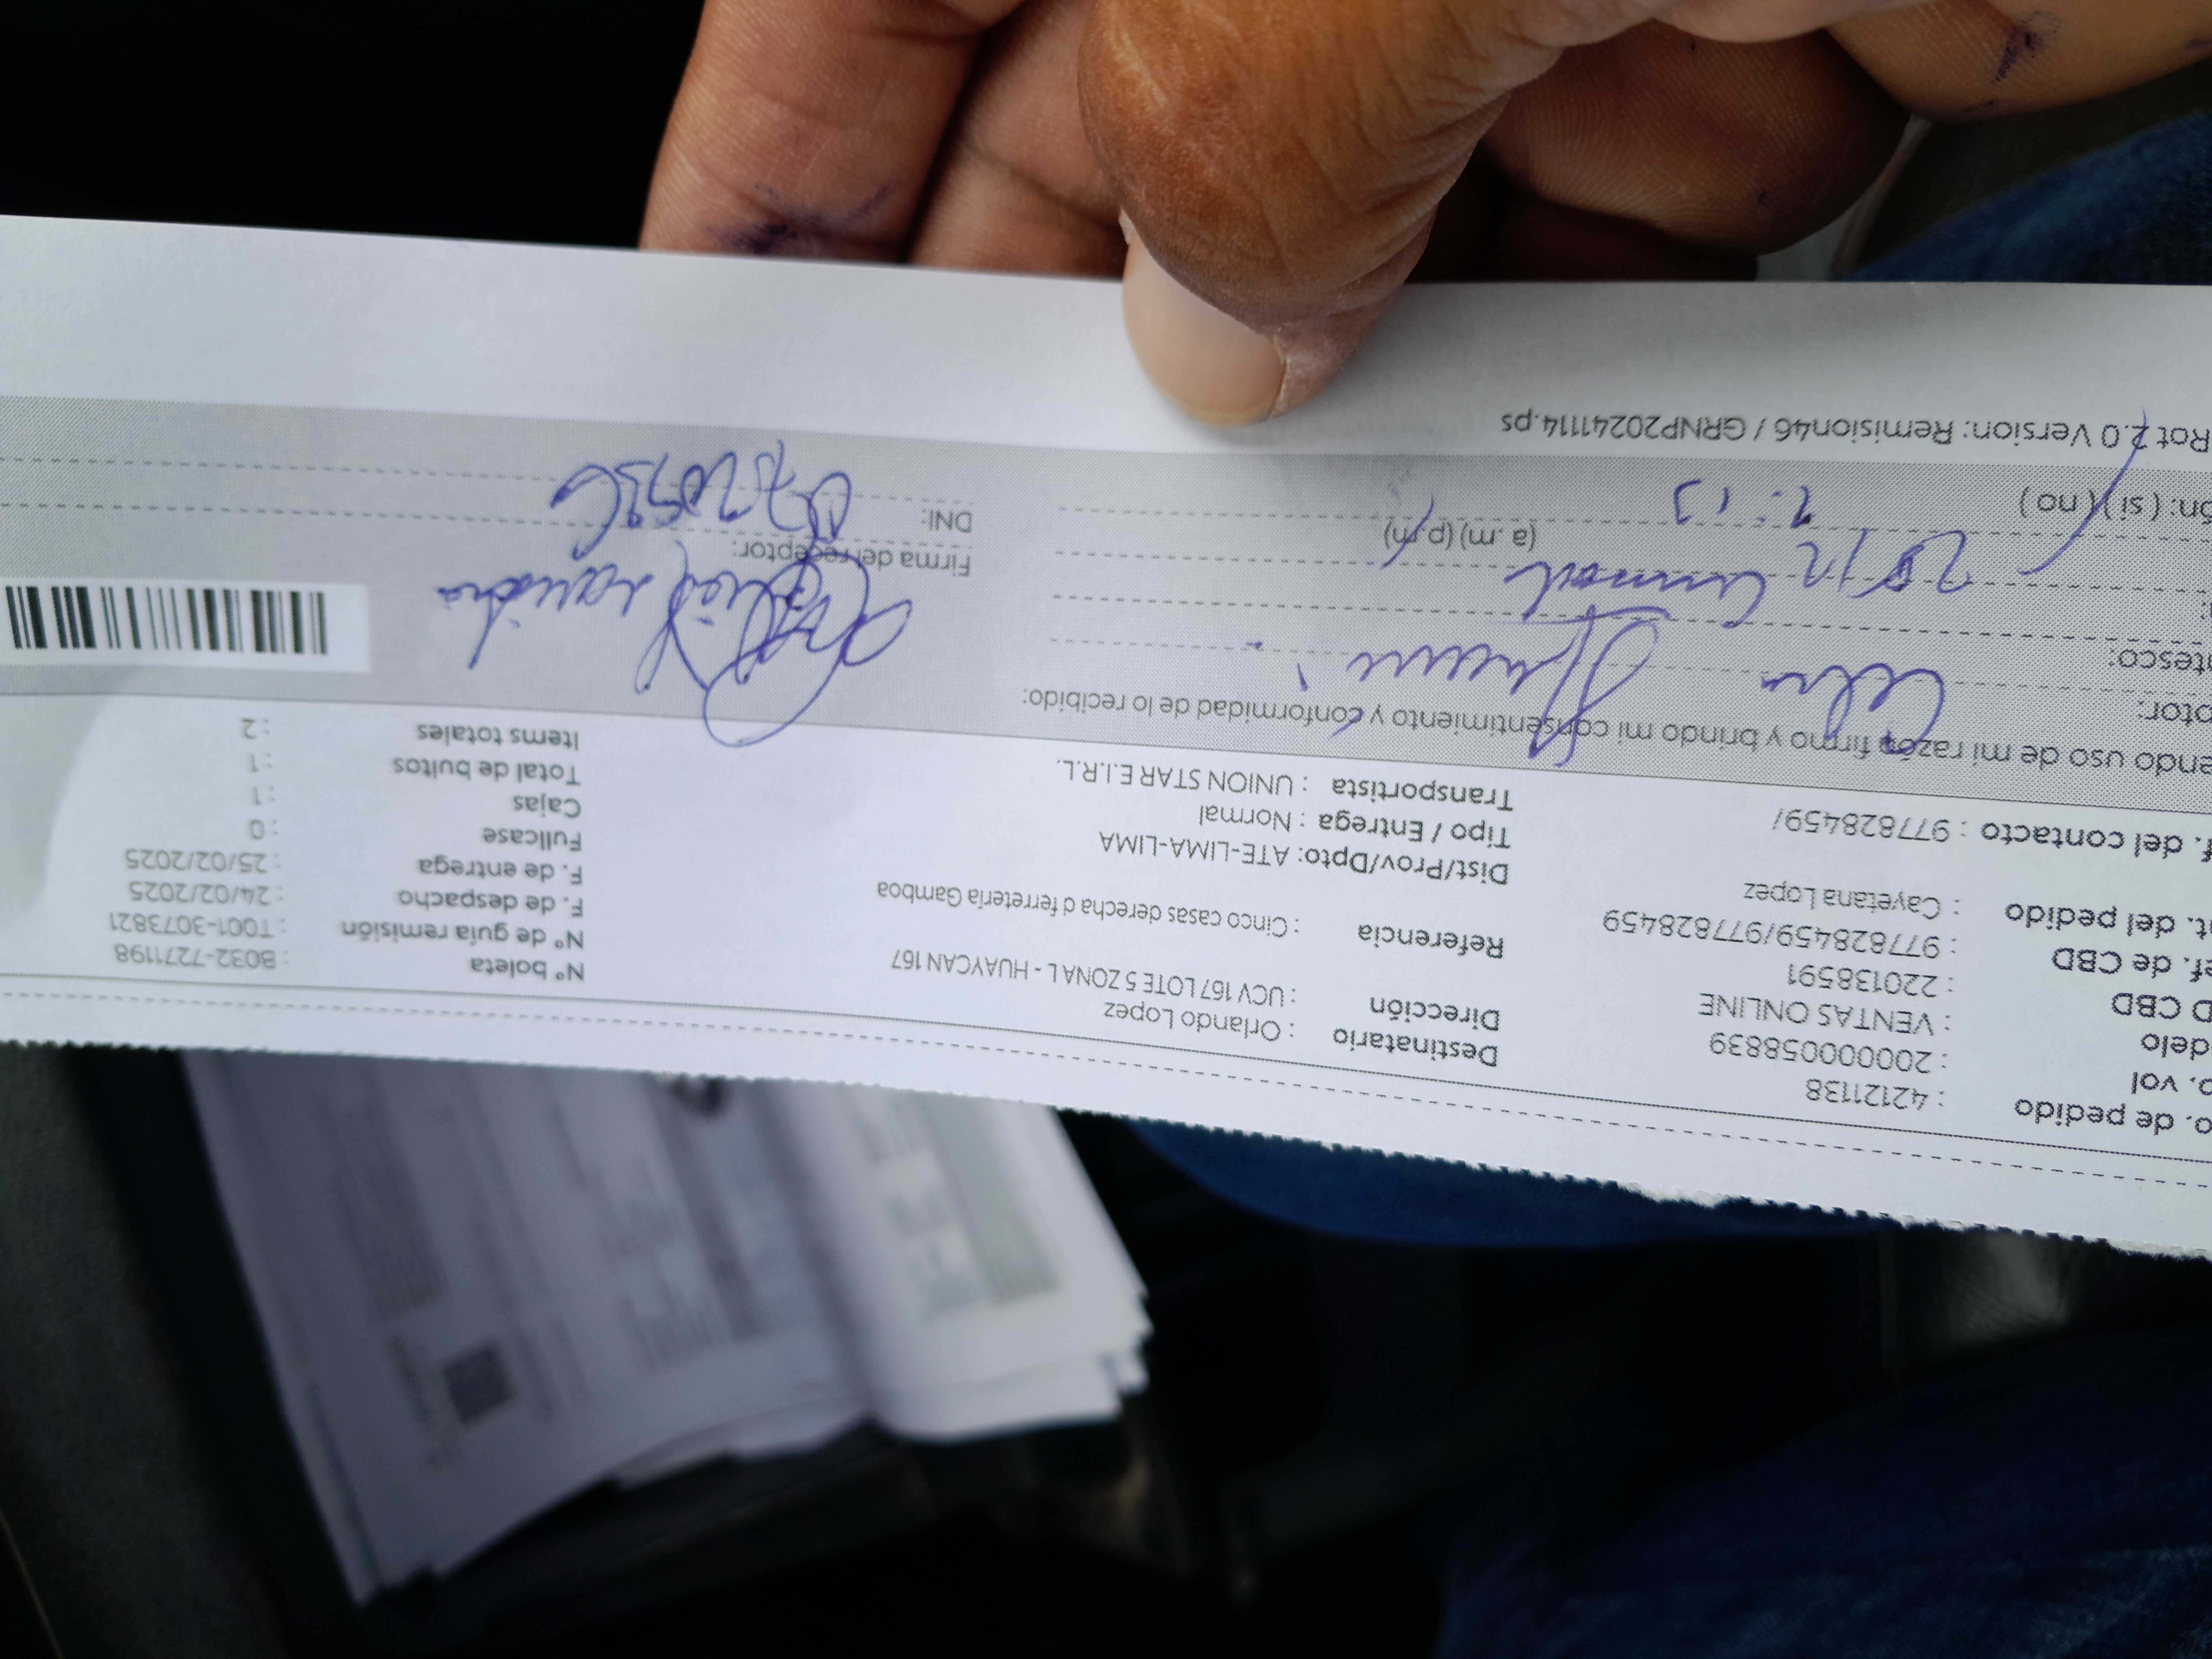 o. de pedido : 42121138
o. vol : 20000058839
delo : VENTAS ONLINE
D CBD : 220138591
ef. de CBD : 977828459/977828459
t. del pedido : Cayetana Lopez
f. del contacto : 977828459/
Destinatario : Orlando Lopez
Dirección : UCV 167 LOTE 5 ZONA L - HUAYCAN 167
Referencia : Cinco casas derecha d ferreteria Gamboa
Dist/Prov/Dpto: ATE-LIMA-LIMA
Tipo / Entrega : Normal
Transportista : UNION STAR E.I.R.L.
N° boleta : B032-7271198
N° de guía remisión : T001-3073821
F. de despacho : 24/02/2025
F. de entrega : 25/02/2025
Fullcase : 0
Cajas : 1
Total de bultos : 1
Items totales : 2
endo uso de mi razón firmo y brindo mi consentimiento y conformidad de lo recibido:
ptor: Celia
tesco:
(a .m) (p.m)
ón: ( si ) ( no )
Firma del receptor:
DNI:
Rot 2.0 Version: Remision46 / GRNP20241114.ps